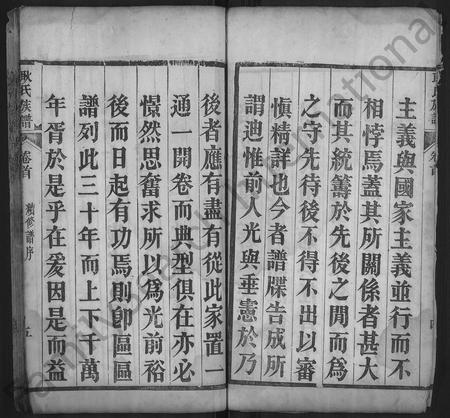 主義與國家主義並行而不
相悖焉蓋其所關係者甚大
而其統籌於先後之閒而為
之守先待後不得不出以審
慎精詳也今者譜牒告成所
謂迪惟前人光與垂憲於乃
後者應有盡有從此家置一
通一開卷而典型俱在亦必
憬然思奮求所以為光前裕
後而日起有功焉則卽區區
譜列此三十年而上下千萬
年胥於是乎在爰因是而益
耿氏族譜 卷首 續修譜序 五